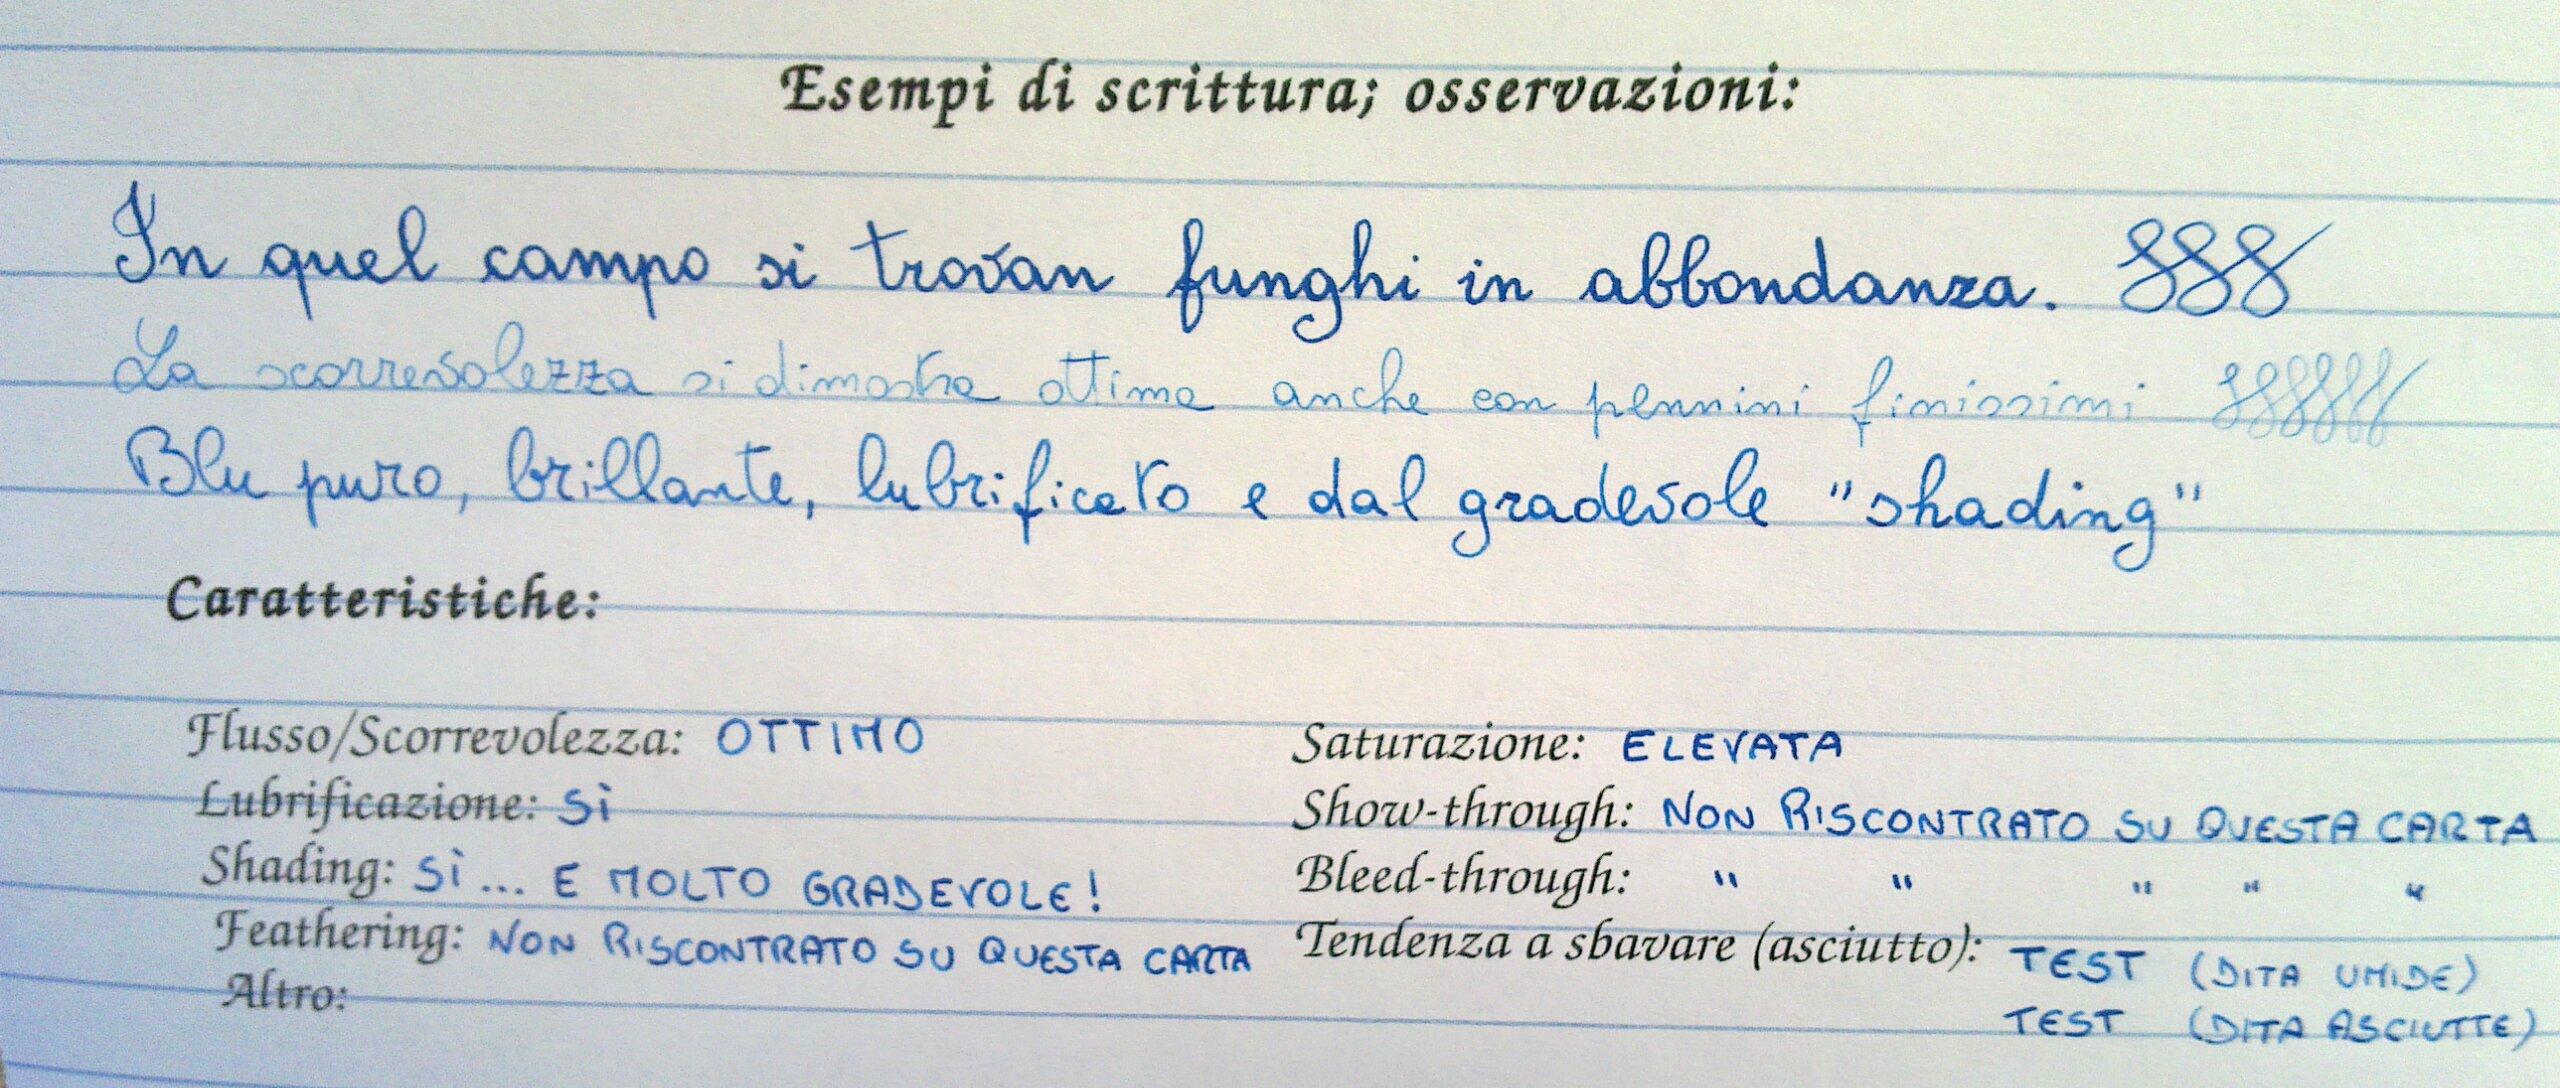 Esempi di scrittura; osservazioni:
In quel campo si trovan funghi in abbondanza.
La scorrevolezza si dimostra ottima anche con pennini finissimi
Blu puro, brillante, lubrificato e dal gradevole "shading"
Caratteristiche:
Flusso/Scorrevolezza: OTTIMO
Lubrificazione: SÌ
Shading: SÌ... E MOLTO GRADEVOLE!
Feathering: NON RISCONTRATO SU QUESTA CARTA
Altro:
Saturazione: ELEVATA
Show-through: NON RISCONTRATO SU QUESTA CARTA
Bleed-through: " " " " "
Tendenza a sbavare (asciutto): TEST (DITA UMIDE)
TEST (DITA ASCIUTTE)